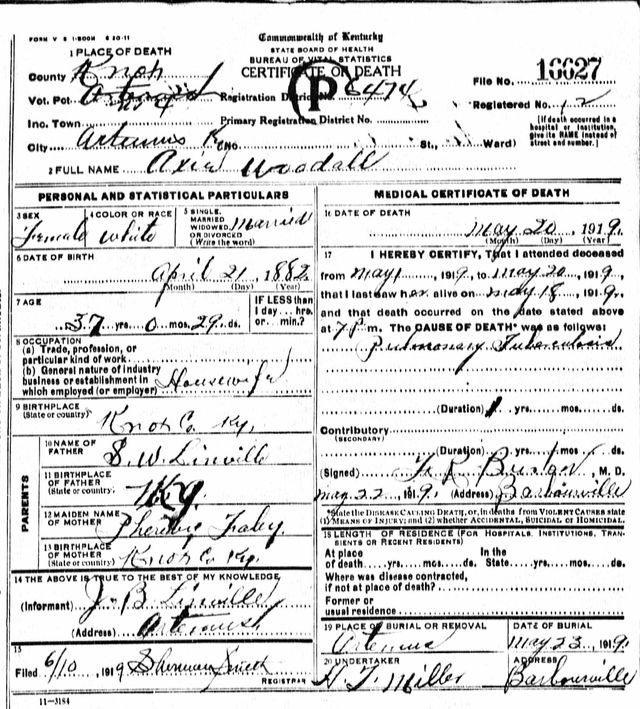 FORM V S 1-500M 6 20-11
Commonwealth of Kentucky
STATE BOARD OF HEALTH
BUREAU OF VITAL STATISTICS
CERTIFICATE OF DEATH
1 PLACE OF DEATH
County Knox
File No. 16627
Vot. Pct. Artemus
Registration District No. 6474
P
Registered No. 12
Inc. Town
Primary Registration District No.
[If death occurred in a hospital or institution, give its NAME instead of street and number.]
City Artemus K (No St., Ward)
2 FULL NAME Axie Woodall
PERSONAL AND STATISTICAL PARTICULARS
3 SEX Female
4 COLOR OR RACE White
5 SINGLE, MARRIED WIDOWED OR DIVORCED (Write the word) Married
6 DATE OF BIRTH
April 21, 1882
(Month) (Day) (Year)
7 AGE
37 yrs. 0 mos. 29 ds.
IF LESS than 1 day ... hrs. or ... min.?
8 OCCUPATION
(a) Trade, profession, or particular kind of work
(b) General nature of industry business or establishment in which employed (or employer) Housewife
9 BIRTHPLACE
(State or country)
Knox Co. Ky.
PARENTS
10 NAME OF FATHER S. W. Linville
11 BIRTHPLACE OF FATHER (State or country) Ky
12 MAIDEN NAME OF MOTHER
13 BIRTHPLACE OF MOTHER (State or country) Knox Co Ky.
14 THE ABOVE IS TRUE TO THE BEST OF MY KNOWLEDGE
(Informant) J. B Linville
(Address)
15
Filed 6/10, 1919 Sherman
REGISTRAR
11-3184
MEDICAL CERTIFICATE OF DEATH
16 DATE OF DEATH
May 20, 1919.
(Month) (Day) (Year)
17 I HEREBY CERTIFY, That I attended deceased
from May 1, 1919, to May 20, 1919,
that I last saw her alive on May 18, 1919,
and that death occurred on the date stated above
at 7 P. m. The CAUSE OF DEATH* was as follows:
Pulmonary Tuberculosis
(Duration) 1 yrs. mos. ds.
Contributory
(SECONDARY)
(Duration) yrs. mos. ds.
(Signed) M. D.
May 22, 1919. (Address) Barbourville
*State the DISEASE CAUSING DEATH, or, in deaths from VIOLENT CAUSES state
(1) MEANS OF INJURY; and (2) whether ACCIDENTAL, SUICIDAL or HOMICIDAL.
18 LENGTH OF RESIDENCE (FOR HOSPITALS, INSTITUTIONS, TRANSIENTS OR RECENT RESIDENTS)
At place of death yrs. mos. ds. In the State yrs. mos. ds.
Where was disease contracted,
if not at place of death?
Former or
usual residence
19 PLACE OF BURIAL OR REMOVAL
Artemus
DATE OF BURIAL
May 23, 1919.
20 UNDERTAKER
H. T. Miller
ADDRESS
Barbourville